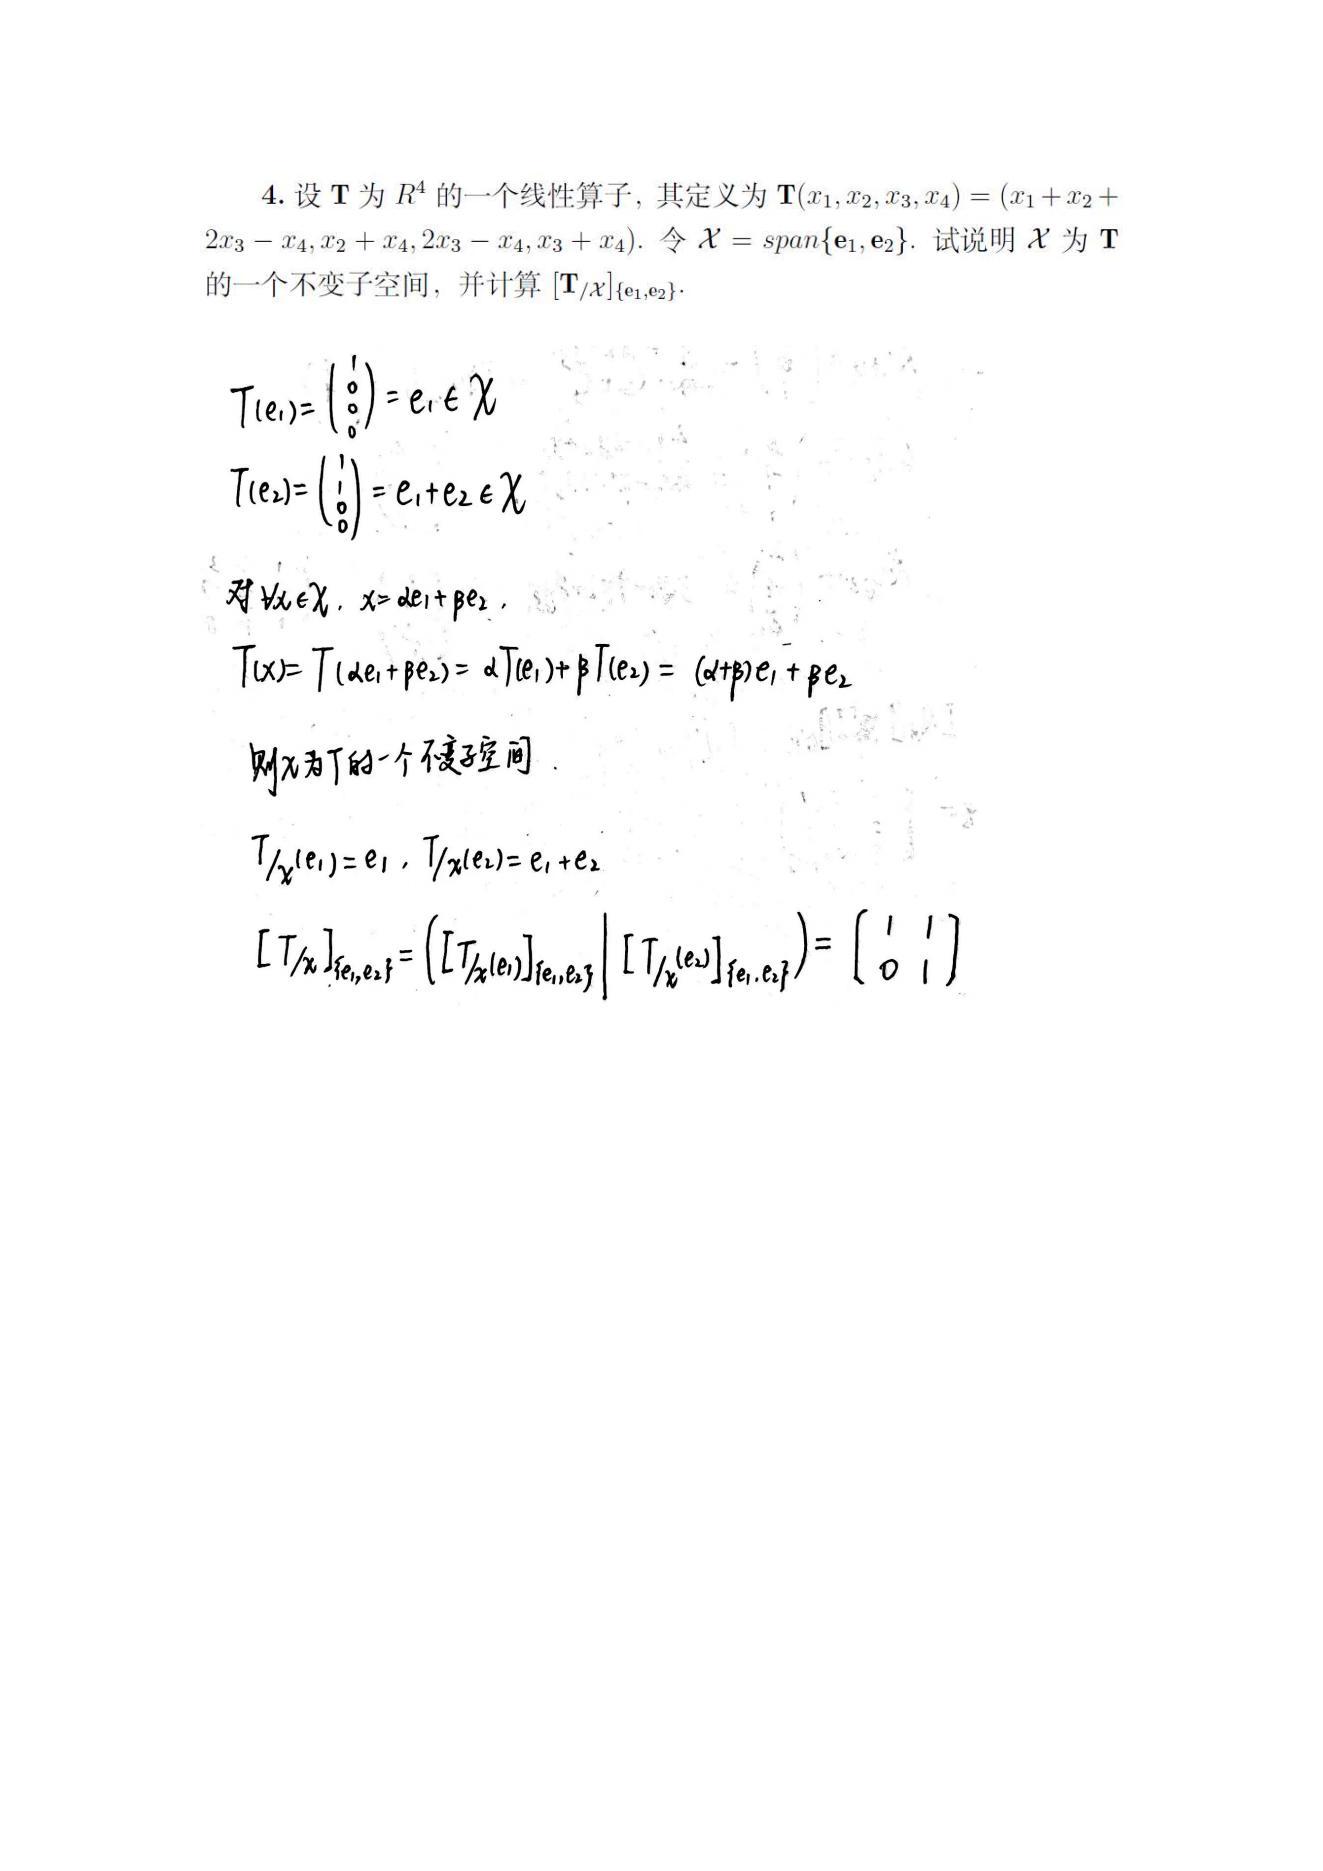 4. 设 T 为 R⁴ 的一个线性算子, 其定义为 T(x₁, x₂, x₃, x₄) = (x₁ + x₂ +
2x₃ − x₄, x₂ + x₄, 2x₃ − x₄, x₃ + x₄). 令 𝒳 = span{e₁, e₂}. 试说明 𝒳 为 T
的一个不变子空间, 并计算 [T/𝒳]{e₁,e₂}.
T(e₁)= (1 0 0 0) = e₁ ∈ 𝒳
T(e₂)= (1 1 0 0) = e₁+e₂ ∈ 𝒳
对 ∀x∈𝒳, x= αe₁+βe₂,
T(x)= T(αe₁+βe₂)= αT(e₁)+βT(e₂) = (α+β)e₁+βe₂
则𝒳为T的一个不变子空间.
T/𝒳(e₁)=e₁, T/𝒳(e₂)= e₁+e₂
[T/𝒳]{e₁,e₂} = ([T/𝒳(e₁)]{e₁,e₂} | [T/𝒳(e₂)]{e₁,e₂}) = [1 1 0 1]